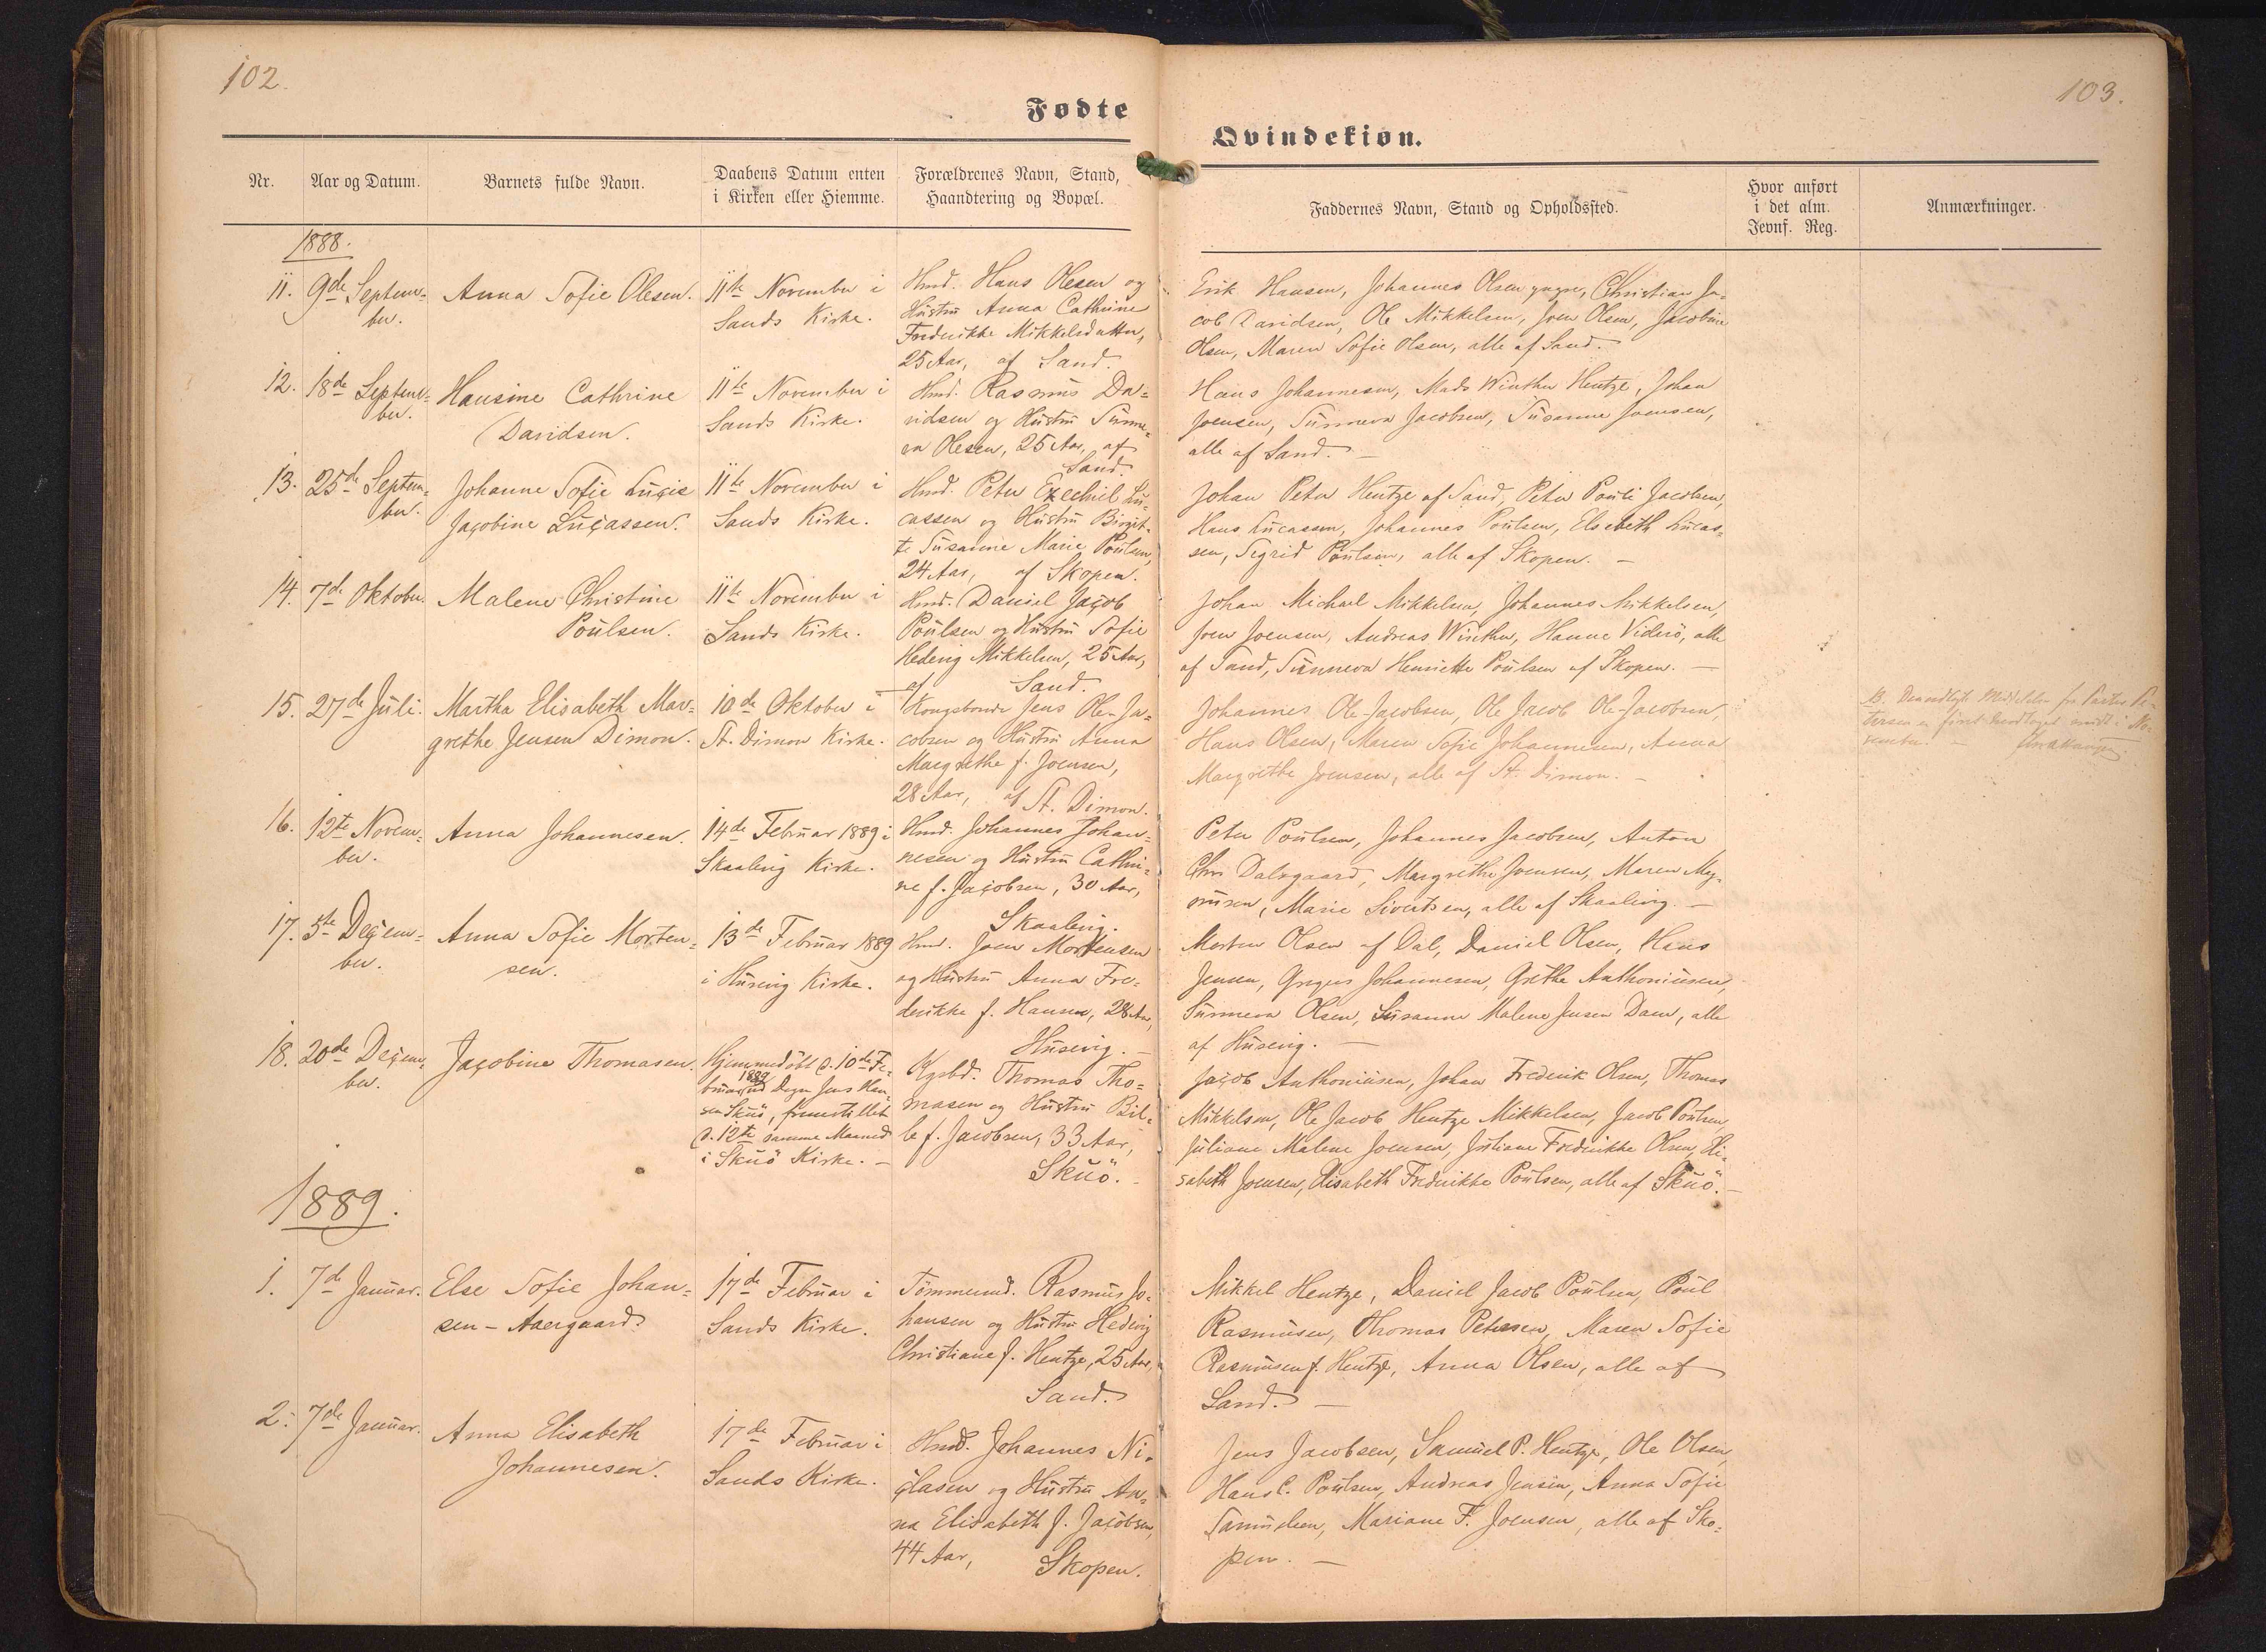 102.
Fødte
Nr.
Aar og Datum.
Barnets fulde Navn.
Daabens Datum enten
i Kirken eller Hiemme.
Forældrenes Navn, Stand,
Haandtering og Bopæl.
1888.
11.
9de Septem-
ber.
Anna Sofie Olesen.
11te November i
Sands Kirke.
Hmd. Hans Olesen og
Hustru Anna Cathrine
Frederikke Mikkelsdatter,
25 Aar, af Sand.
12.
18de Septem-
ber.
Hansine Cathrine
Davidsen.
11te November i
Sands Kirke.
Hmd. Rasmus Da-
vidsen og Hustru Sunne-
va Olesen, 25 Aar, af
Sand.
13.
25de Septem-
ber.
Johanne Sofie Lucie
Jacobine Lucassen.
11te November i
Sands Kirke.
Hmd. Peter Ezechiel Lu-
cassen og Hustru Birgit-
te Susanne Marie Poulsen,
24 Aar, af Skopen.
14.
7de Oktober.
Malene Christine
Poulsen.
11te November i
Sands Kirke.
Hmd. Daniel Jacob
Poulsen og Hustru Sofie
Hedevig Mikkelsen, 25 Aar,
af Sand.
15.
27de Juli.
Martha Elisabeth Mar-
grethe Jensen Dimon.
10de Oktober i
St. Dimon Kirke.
Kongsbonde Jens Ole-Ja-
cobsen og Hustru Anna
Margrethe f. Joensen,
28 Aar, af St. Dimon.
16.
12te Novem-
ber.
Anna Johannesen.
14de Februar 1889 i
Skaalevig Kirke.
Hmd. Johannes Johan-
nesen og Hustru Cathri-
ne f. Jacobsen, 30 Aar,
Skaalevig.
17.
5te Decem-
ber.
Anna Sofie Morten-
sen.
13de Februar 1889
i Husevig Kirke.
Hmd. Joen Mortensen
og Hustru Anna Fre-
derikke f. Hansen, 28 Aar,
Husevig. —
18.
20de Decem-
ber.
Jacobine Thomasen.
Hjemmedøbt d. 10de Fe-
bruar 1889 ved Degn Jens Han-
sen Skuö, fremstillet
d. 12te samme Maaned
i Skuö Kirke. —
Kgsbd. Thomas Tho-
masen og Hustru Bil-
le f. Jacobsen, 33 Aar,
Skuö.
1889.
1.
7de Januar.
Else Sofie Johan-
sen - Aaergaard.
17de Februar i
Sands Kirke.
Tömmermd. Rasmus Jo-
hansen og Hustru Hedevig
Christiane f. Hentze, 25 Aar,
Sand.
2.
7de Januar.
Anna Elisabeth
Johannesen.
17de Februar i
Sands Kirke.
Hmd. Johannes Ni-
clasen og Hustru An-
na Elisabeth f. Jacobsen,
44 Aar, Skopen.
103.
Qvindekiøn.
Faddernes Navn, Stand og Opholdssted.
Hvor anført
i det alm.
Jevnf. Reg.
Anmærkninger.
Erik Hansen, Johannes Olsen yngre, Christian Ja-
cob Davidsen, Ole Mikkelsen, Joen Olsen, Jacobine
Olsen, Maren Sofie Olsen, alle af Sand.
Hans Johannesen, Mads Winther Hentze, Johan
Joensen, Sunneva Jacobsen, Susanne Joensen,
alle af Sand. —
Johan Peter Hentze af Sand, Peter Pouli Jacobsen,
Hans Lucassen, Johannes Poulsen, Elsebeth Lucas-
sen, Sigrid Poulsen, alle af Skopen. —
Johan Michael Mikkelsen, Johannes Mikkelsen,
Joen Joensen, Andreas Winther, Hanne Viderö, alle
af Sand, Sunneva Henriette Poulsen af Skopen. —
Johannes Ole-Jacobsen, Ole Jacob Ole-Jacobsen,
Hans Olsen, Maren Sofie Johannesen, Anna
Margrethe Joensen, alle af St. Dimon. —
Meddelelse fra Pastor Pe-
tersen er først modtaget midt i No-
vember. —
Peter Poulsen, Johannes Jacobsen, Anton
Chr. Dalsgaard, Margrethe Joensen, Maren Mag-
nusen, Marie Sivertsen, alle af Skaalevig. —
Morten Olsen af Dal, Daniel Olsen, Hans
Jensen, Gregers Johannesen, Grethe Anthoniusen,
Sunneva Olsen, Susanne Malene Jensen Dam, alle
af Husevig. —
Jacob Anthoniusen, Johan Frederik Olsen, Thomas
Mikkelsen, Ole Jacob Hentze Mikkelsen, Jacob Poulsen,
Juliane Malene Joensen, Juliane Frederikke Olsen, Eli-
sabeth Joensen, Elisabeth Frederikke Poulsen, alle af Skuö. —
Mikkel Hentze, Daniel Jacob Poulsen, Poul
Rasmusen, Thomas Petersen, Maren Sofie
Rasmusen f. Hentze, Anna Olsen, alle af
Sand. —
Jens Jacobsen, Samuel P. Hentze, Ole Olsen,
Hans C. Poulsen, Andreas Jensen, Anna Sofie
Samuelsen, Mariane F. Joensen, alle af Sko-
pen. —